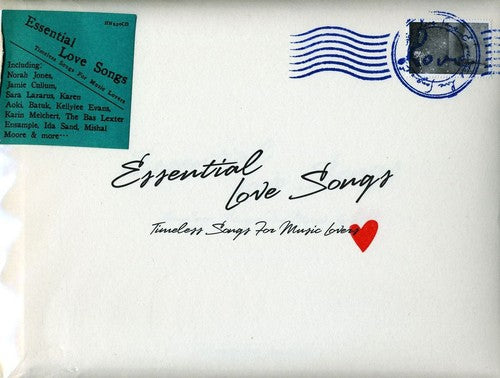 Essential
Love Songs
Timeless Songs For Music Lovers
Including:
Norah Jones,
Jamie Cullum,
Sara Lazarus, Karen
Aoki, Batuk, Kellylee Evans,
Karin Melchert, The Bas Lexter
Ensample, Ida Sand, Mishal
Moore & more…
Essential
Love Songs
Timeless Songs For Music Lovers